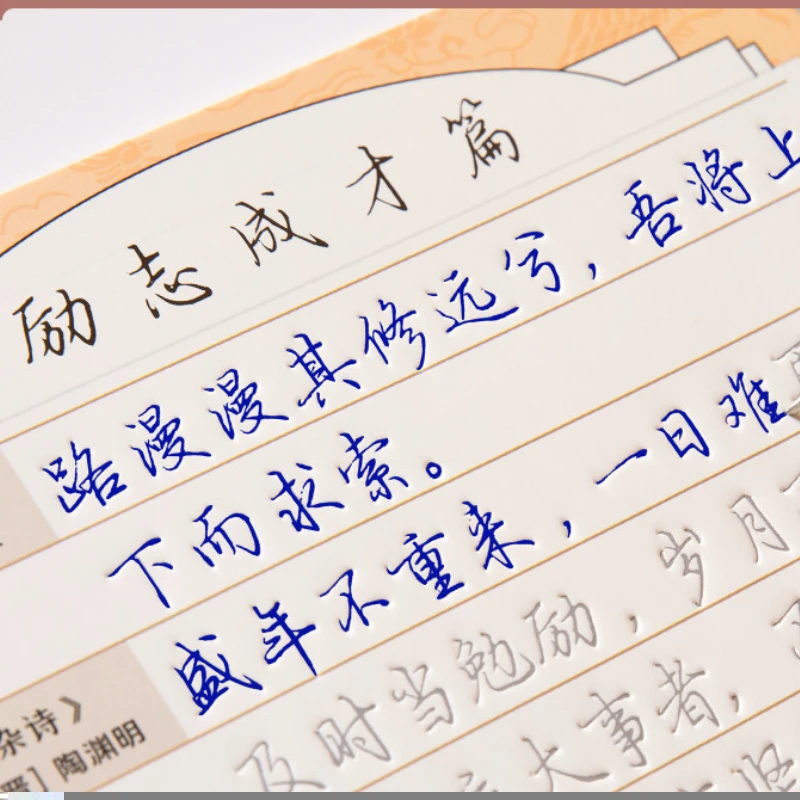 励志成才篇
路漫漫其修远兮，吾将上
下而求索。
盛年不重来，一日难
及时当勉励，岁月
大事者，
杂诗》
陶渊明